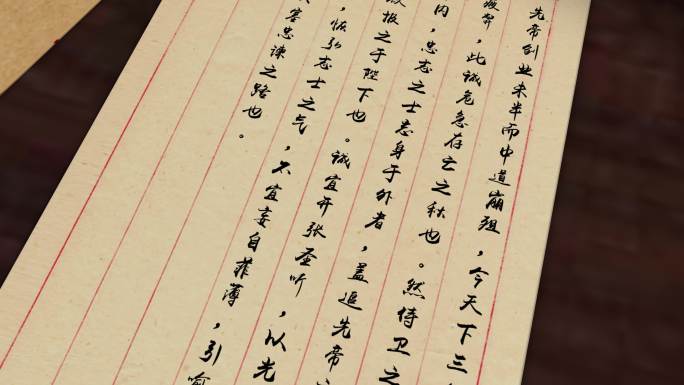 先帝创业未半而中道崩殂，今天下三
疲弊，此诚危急存亡之秋也。然侍卫之
内，忠志之士忘身于外者，盖追先帝
报之于陛下也。诚宜开张圣听，以光
，恢弘志士之气，不宜妄自菲薄，引喻
塞忠谏之路也。